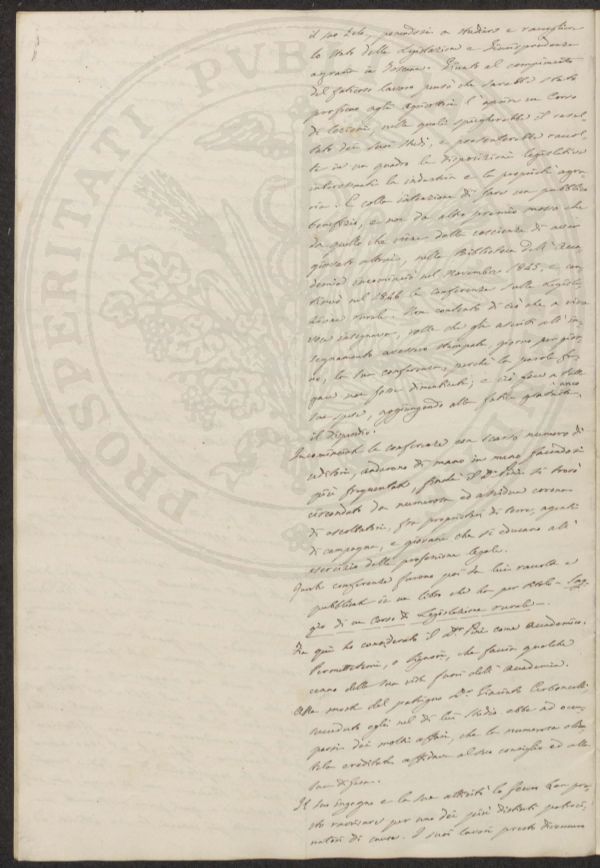 il suo zelo, ponendosi a studiare e raccogliere
lo stato della Legislazione e Giurisprudenza
agraria in Toscana. Giunto al compimento
del faticoso lavoro pensò che sarebbe stato
proficuo agli agricoltori l'aprire un Corso
di Lezioni, nelle quali spiegherebbe il resul
tato dei suoi studi, e presenterebbe raccol
te in un quadro le disposizioni legislative
interessanti la industria e la proprietà agra
ria. E colla intenzione di fare un pubblico
benefizio, e non da altro premio mosso che
da quello che viene dalla coscienza di aver
giovato altrui, nella Biblioteca dell'Acca
demia incominciò nel Novembre 1845, e con
tinuò nel 1846 le conferenze sulla Legisla
zione rurale. Non contento di ciò che a viva
voce insegnava, volle che gli ascritti all'in
segnamento avessero stampate, giorno per gior
no, le sue conferenze, perchè la parola fu
gace non fosse dimenticata; e ciò fece a tutte
sue spese, aggiungendo alla fatica gratuita anco
il dispendio.
Incominciate le conferenze con scarso numero di
uditori, andarono di mano in mano facendosi
più frequentate, finchè il Dr. Pini si trovò
circondato da numerosa ed assidua corona
di ascoltatori, fra proprietari di terre, agenti
di campagna, e giovani che si educano all'
esercizio della professione legale.
Queste conferenze furono poi da lui raccolte e
pubblicate in un libro che ha per titolo - Sag
gio di un Corso di Legislazione rurale -.
Fin qui ho considerato il Dr. Pini come Accademico.
Permettetemi, o Signori, che faccia qualche
cenno della sua vita fuori dell'Accademia.
Alla morte del patrigno Dr. Giacinto
succeduto egli nel di lui studio ebbe ad occu
parsi dei molti affari, che la numerosa clien
tela ereditata affidava al suo consiglio ed alla
sua difesa.
Il suo ingegno e la sua attività lo fecero ben pre
sto ravvisare per uno dei più distinti patroci
natori di cause. I suoi lavori presto divennero
PROSPERITATI PUBLICAE